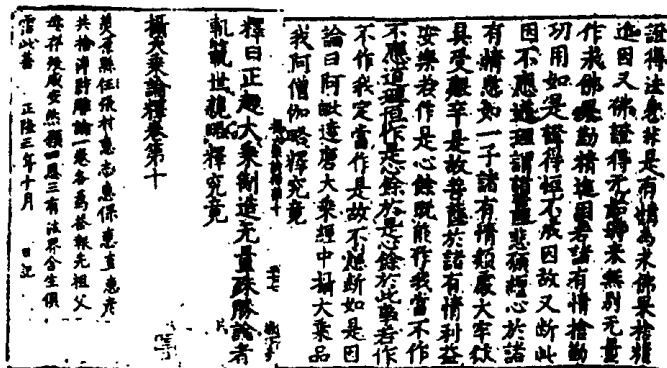 證得法息非是有情為求佛果捨精
進因又佛證得无始歸来無別无量
作我佛果勤精進因若諸有情捨勤
功用如是證得恒不成因故又斷此
因不應道理謂諸菩薩悲願纏心於諸
有情愍如一子諸有情類處大牢獄
具受艱辛是故菩薩於諸有情利益
安樂若作是心餘既能作我當不作
不應道理恒作是心餘於是心餘於此事若作
不作我定當作是故不應斷如是因
論曰阿毗達磨大乘經中攝大乘品
我阿僧伽略釋究竟
釋曰正趣大乘制造无量殊勝論者
軌範世親略釋究竟
攝大乘論釋卷第十
萬泉縣任張村惠志惠保惠直惠
共捨淨財雕論一卷各為答報先祖父
母
正隆三年十月 日記